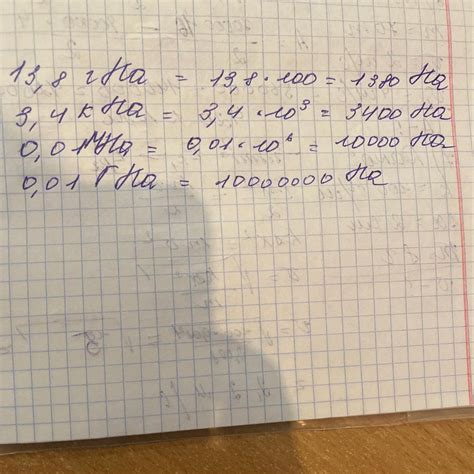 13,8 гПа = 13,8 · 100 = 1380 Па
3,4 кПа = 3,4 · 10³ = 3400 Па
0,01 МПа = 0,01 · 10⁶ = 10000 Па
0,01 ГПа = 10000000 Па